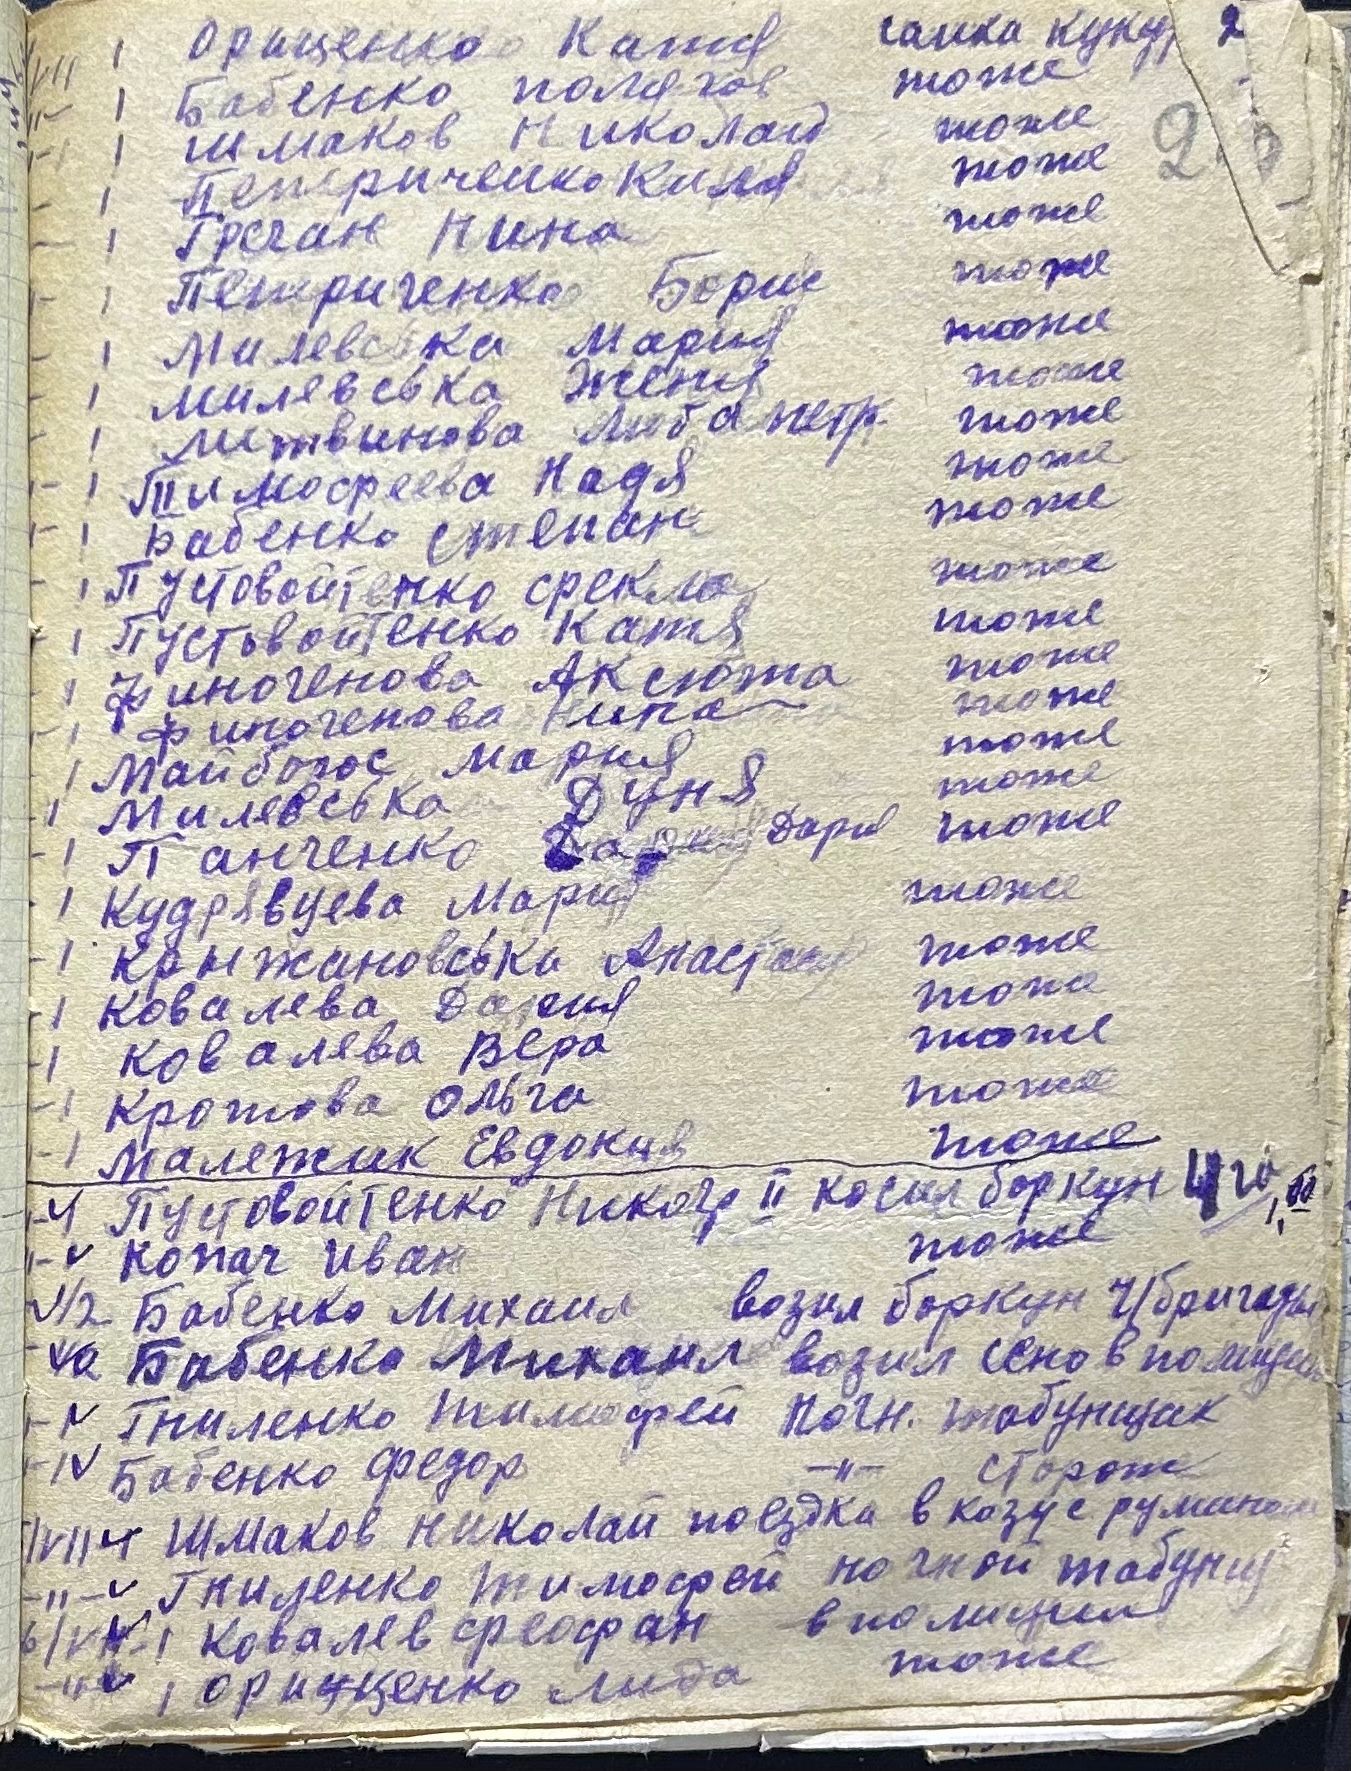 1 Орищенко Катя сапка кукур 2
1 Бабенко Поляхов тоже
1 Шмаков Николай тоже
1 Петриченко Киля тоже
1 Гречан Нина тоже
1 Петриченко Борис тоже
1 Милевська Мария тоже
1 Милевська Женя тоже
1 Литвинова Люба петр. тоже
1 Тимофеева Надя тоже
1 Бабенко Степан тоже
1 Пустовойтенко Фекла тоже
1 Пустовойтенко Катя тоже
1 Финогенова Аксюта тоже
1 Финогенова Нина тоже
1 Майборос Мария тоже
1 Милевська Дуня тоже
1 Панченко Дария тоже
1 Кудрявцева Мария тоже
1 Кранжановська Анастаси тоже
1 Ковалева Дария тоже
1 Ковалева Вера тоже
1 Кротова Ольга тоже
1 Малежик Евдокия тоже
Пустовойтенко II косил боркун 4 га
Копач Иван тоже
1/2 Бабенко Михаил возил боркун 4/бригады
Бабенко Михаил возил сено в полицию
Гниленко Тимофей ночн. табунщик
Бабенко Федор -"- сторож
Шмаков Николай поездка в с румином
-"- Гниленко Тимофей ночной табунщ
1 Ковалев Феофан в полиции
-"- 1 Орищенко Лида тоже